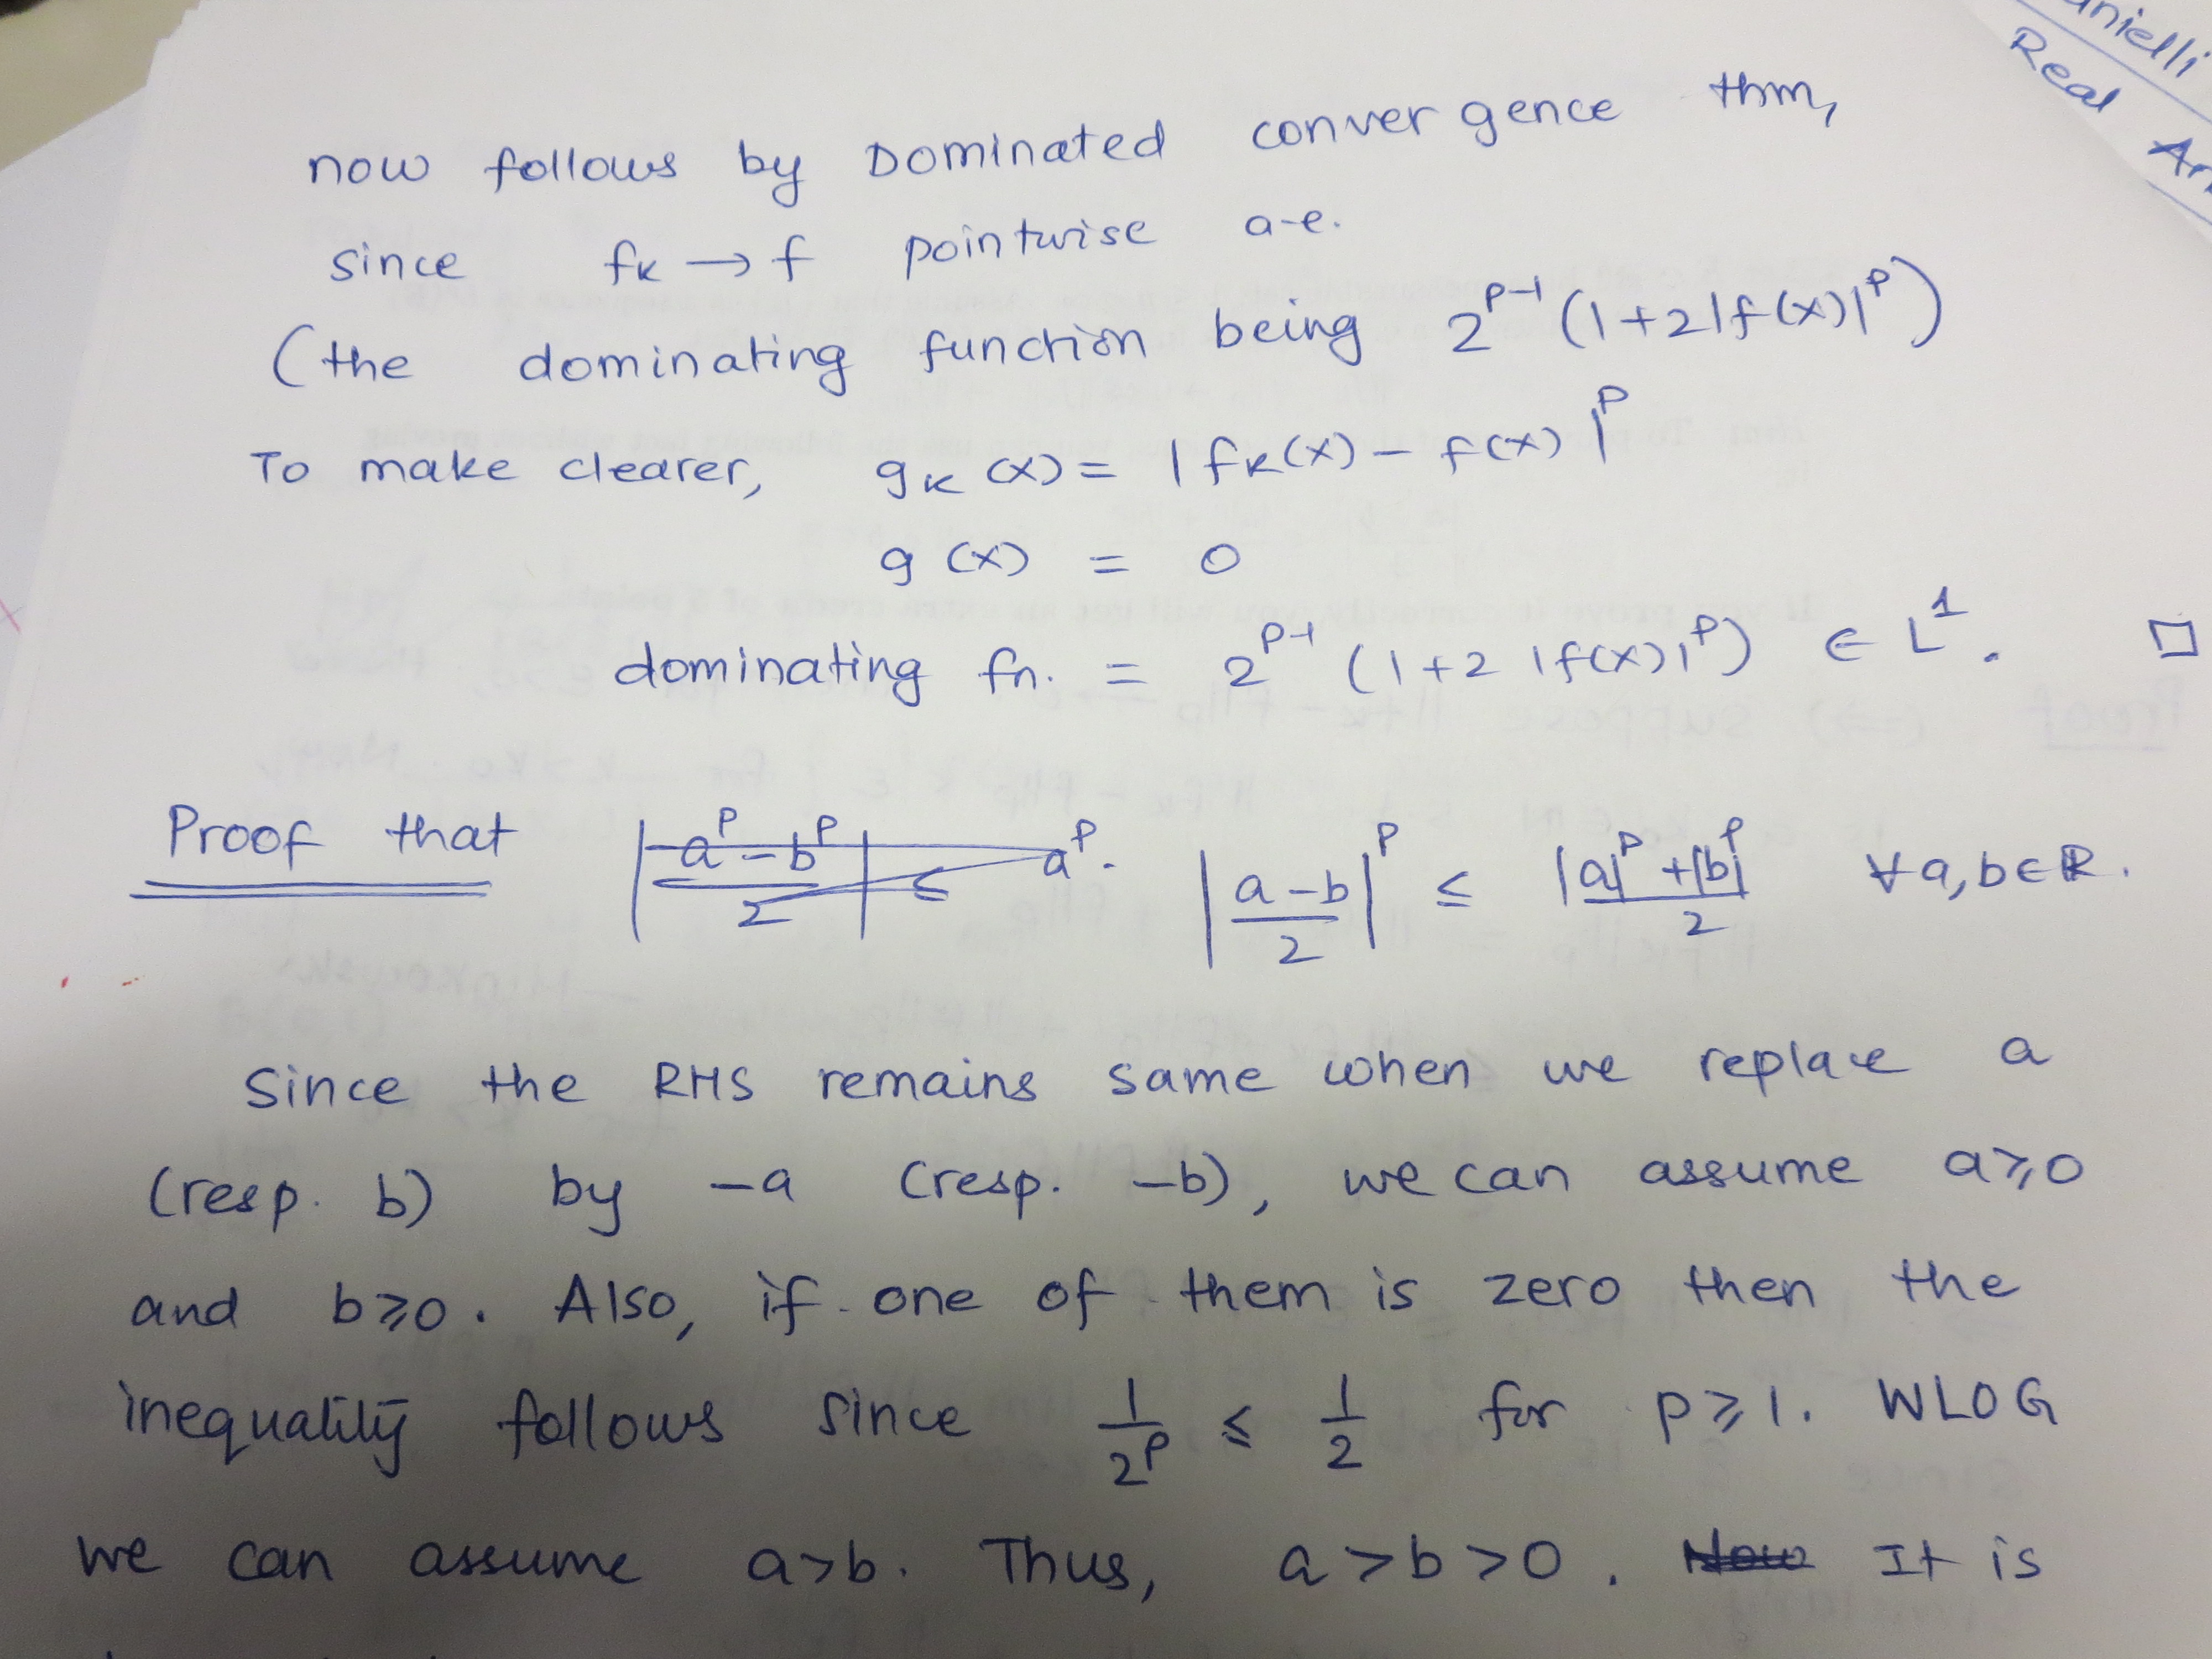 anielli
Real An
now follows by Dominated convergence thm,
since fₖ → f pointwise a-e.
(the dominating function being 2^{p-1} (1+2|f(x)|^p)
To make clearer, gₖ(x) = |fₖ(x) - f(x)|^p
g(x) = 0
dominating fn. = 2^{p-1} (1+2|f(x)|^p) ∈ L^1. □
Proof that |(a-b)/2|^p ≤ (|a|^p + |b|^p)/2 ∀ a,b∈ℝ.
Since the RHS remains same when we replace a
(resp. b) by -a (resp. -b), we can assume a≥0
and b≥0. Also, if one of them is zero then the
inequality follows since 1/2^p ≤ 1/2 for p≥1. WLOG
we can assume a>b. Thus, a>b>0. It is